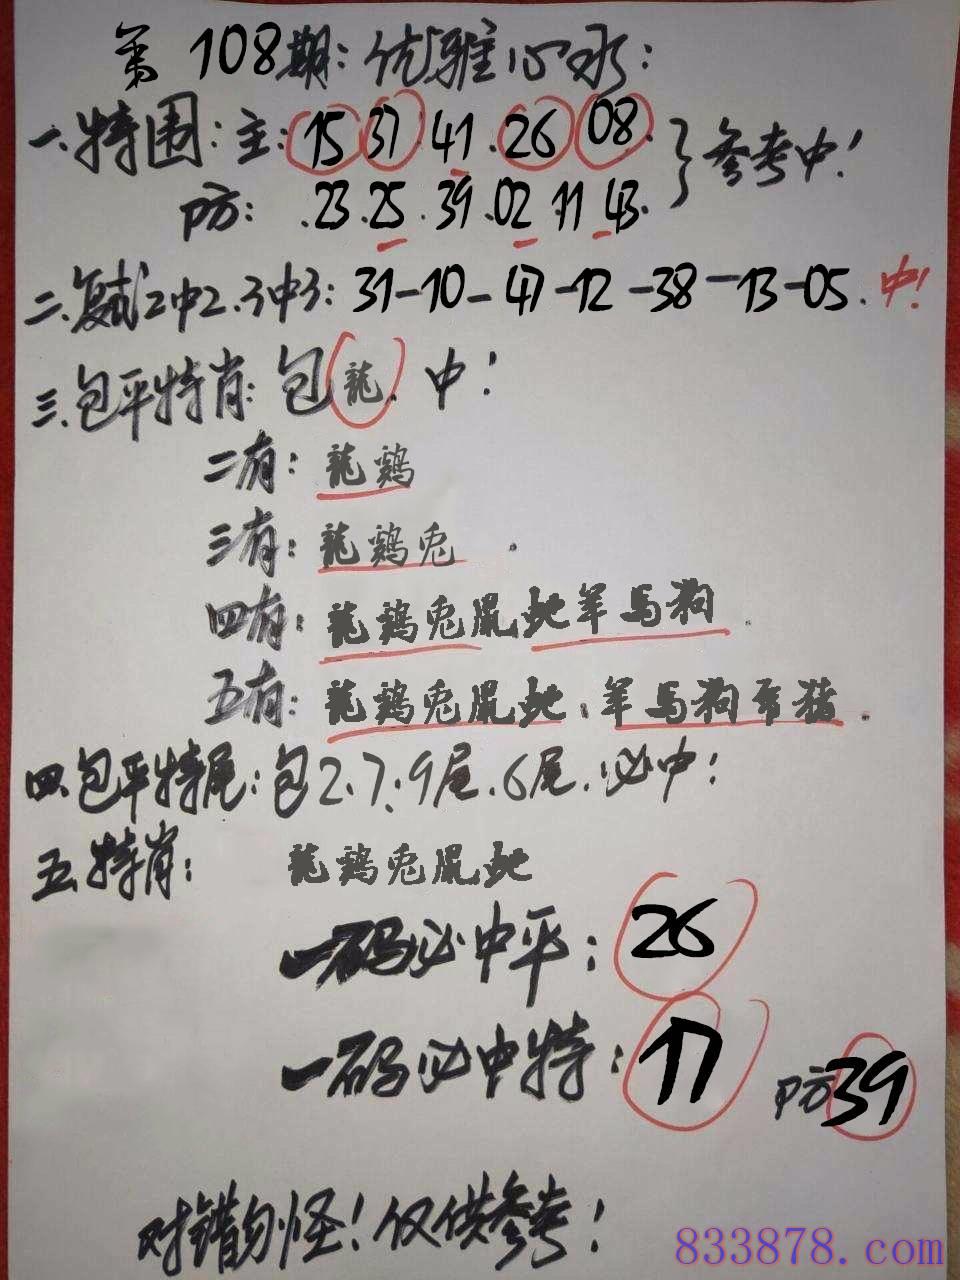 第108期:优雅心水:
一.特围:主:15 37 41.26 08.
防:.23.25.39.02 11 43.
}参考中!
二.复试2中2.3中3:31-10-47-12-38-13-05.中!
三.包平特肖:包龍.中!
二有:龍鷄
三有:龍鷄兎.
四有:龍鷄兎鼠蛇羊马狗.
五有:龍鷄兎鼠蛇.羊马狗 猪.
四.包平特尾:包2.7.9尾.6尾.必中!
五.特肖:龍鷄兎鼠蛇
一码必中平:26
一码必中特:17 防39
对错勿怪!仅供参考!
833878.com